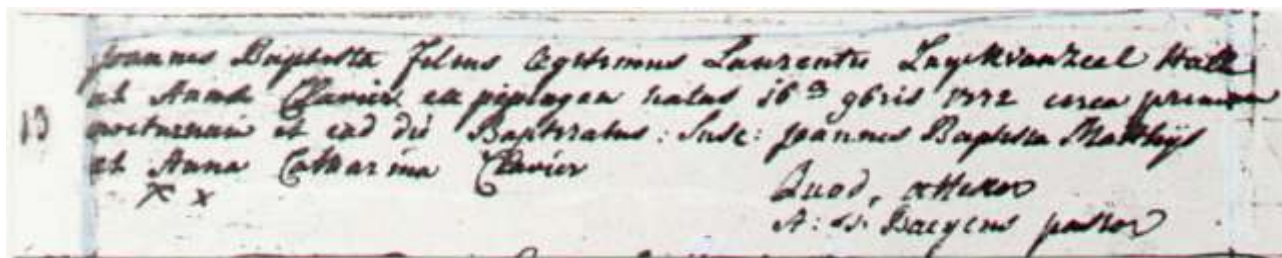 Joannes Baptista filius legitimus Laurentii Luyckvanzeel Hall
et Annæ Clavier ex pipingen natus 16ᵃ 9bris 1772 circa primam
13 nocturnam et ead die Baptizatus: Susc: Joannes Baptista Matthijs
et Anna Catharina Clavier
x x
Quod, attestor
A: Baegens pastor